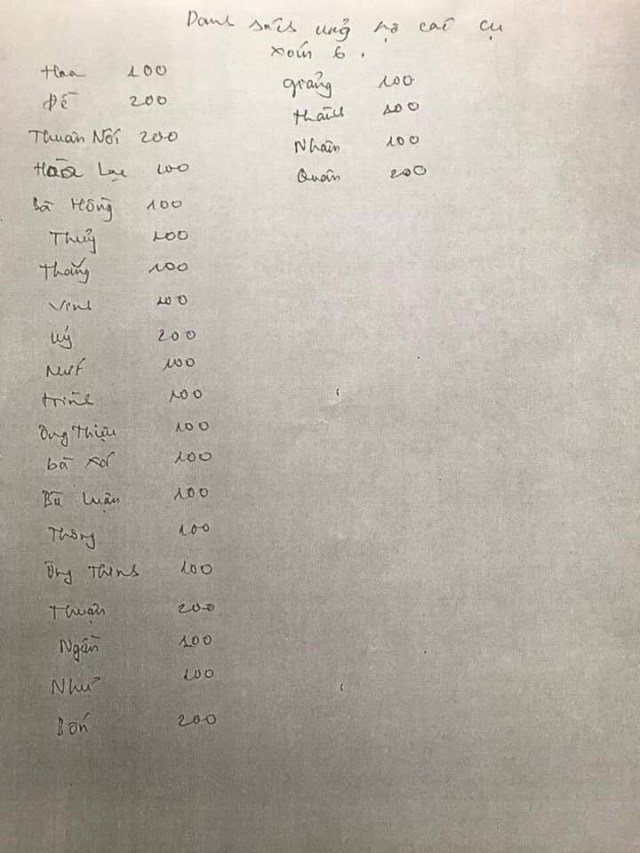 Danh sách ủng hộ các cụ
xóm 6.
Hoa 100
Đề 200
Thuân Nối 200
Lạc 100
bà Hồng 100
Thủy 100
Thắng 100
Vinh 100
Uý 200
100
trình 100
Ông Thiệu 100
bà 100
Bà Luận 100
Thông 100
Ông Thịnh 100
Thuận 200
Ngân 100
Như 100
Bốn 200
Quảng 100
thành 100
Nhân 100
Quân 200